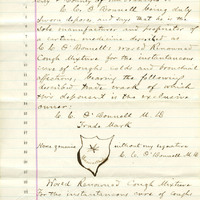 C. C. O'Donnell being duly
sworn deposes and says that he is the
sole manufacturer and proprietor of
a certain medicine described as
C. C. O'Donnell's World Renowned
Cough Mixture for the instantaneous
cure of coughs colds and
affections, bearing the following
described trade mark of which
this deponent is the exclusive
owner.
C. C. O'Donnell M. D.
Trade Mark
None genuine without my signature
C. C. O'Donnell M. D.
World Renowned Cough Mixture
for the instantaneous cure of coughs